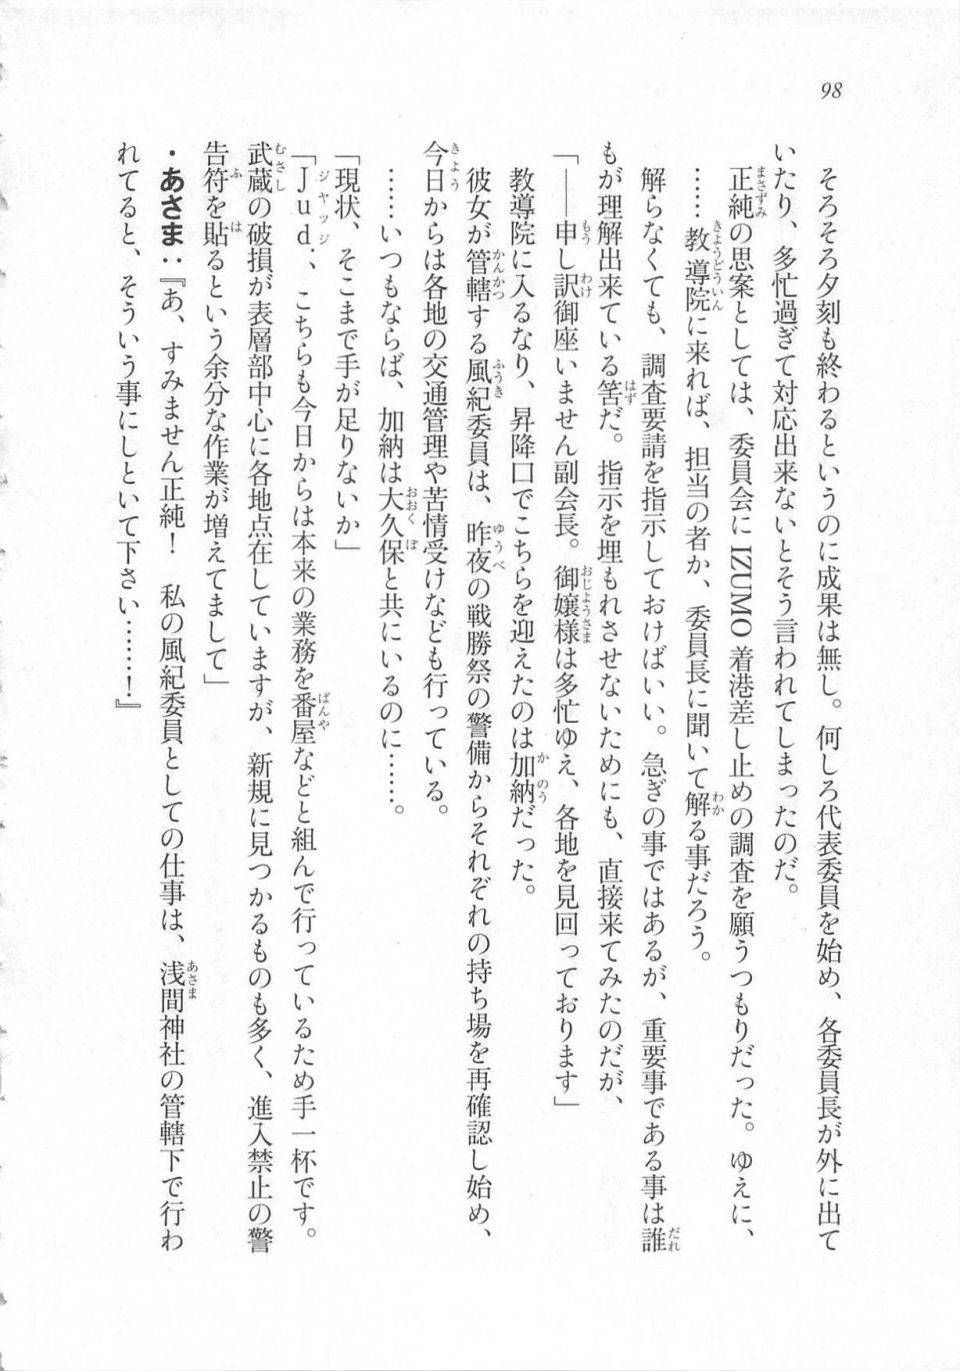 98
そろそろ夕刻も終わるというのに成果は無し。何しろ代表委員を始め、各委員長が外に出て
いたり、多忙過ぎて対応出来ないとそう言われてしまったのだ。
正純の思案としては、委員会にIZUMO着港差し止めの調査を願うつもりだった。ゆえに、
……教導院に来れば、担当の者か、委員長に聞いて解る事だろう。
解らなくても、調査要請を指示しておけばいい。急ぎの事ではあるが、重要事である事は誰
もが理解出来ている筈だ。指示を埋もれさせないためにも、直接来てみたのだが、
「――申し訳御座いません副会長。御嬢様は多忙ゆえ、各地を見回っております」
教導院に入るなり、昇降口でこちらを迎えたのは加納だった。
彼女が管轄する風紀委員は、昨夜の戦勝祭の警備からそれぞれの持ち場を再確認し始め、
今日からは各地の交通管理や苦情受けなども行っている。
……いつもならば、加納は大久保と共にいるのに……。
「現状、そこまで手が足りないか」
「Jud.、こちらも今日からは本来の業務を番屋などと組んで行っているため手一杯です。
武蔵の破損が表層部中心に各地点在していますが、新規に見つかるものも多く、進入禁止の警
告符を貼るという余分な作業が増えてまして」
・あさま：『あ、すみません正純！　私の風紀委員としての仕事は、浅間神社の管轄下で行わ
れてると、そういう事にしといて下さい……！』